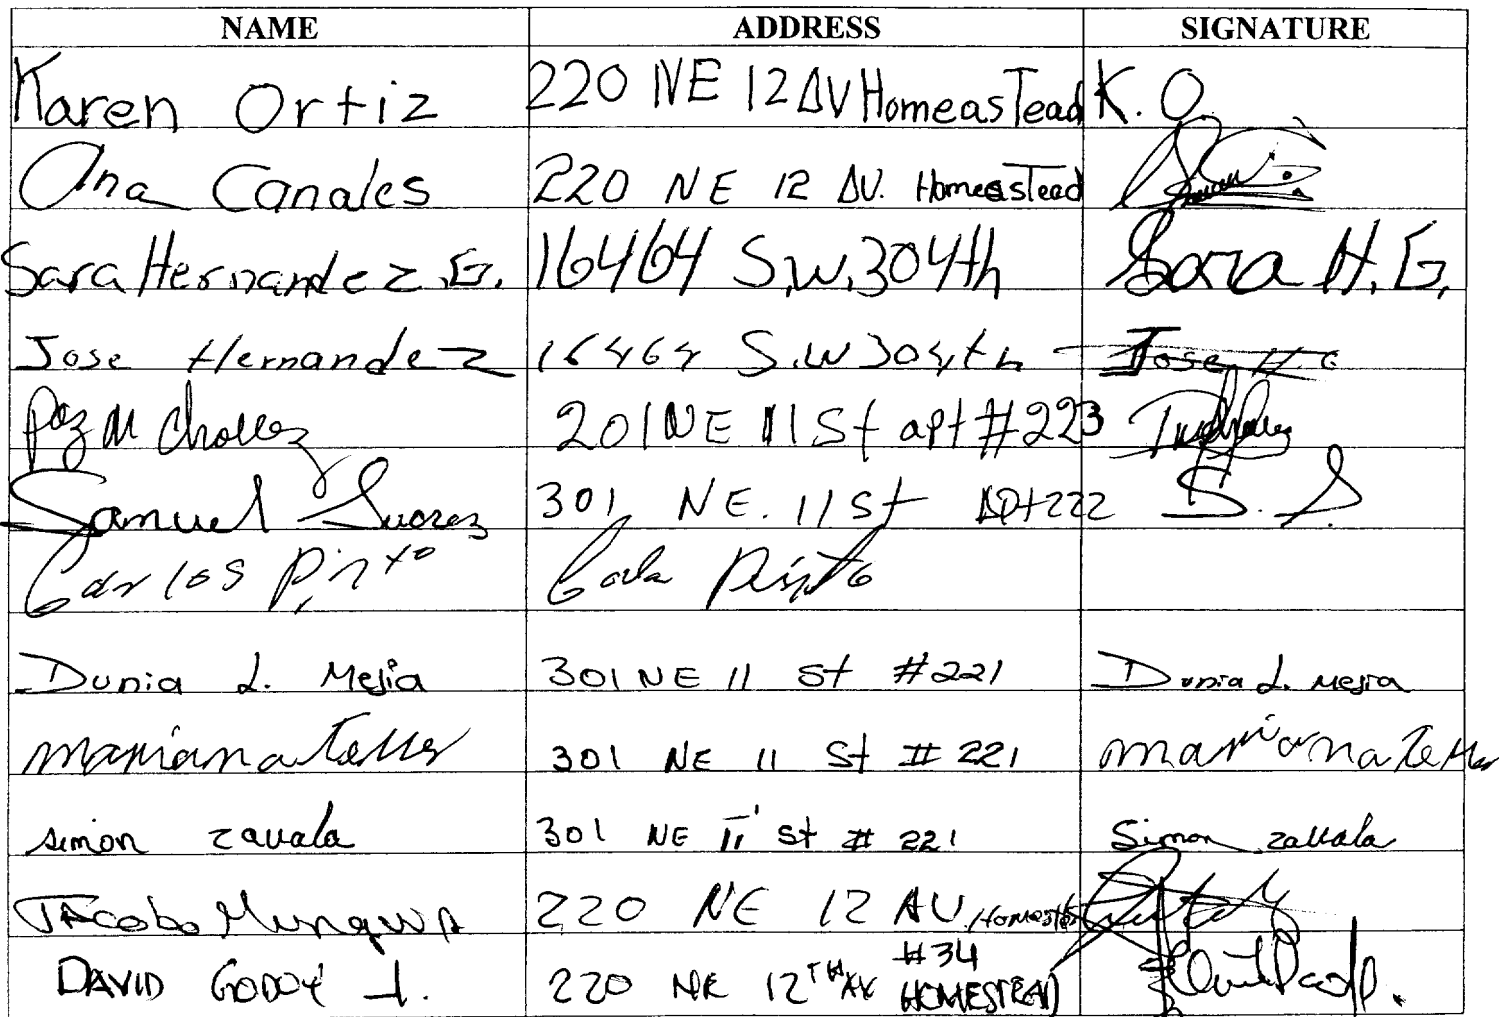 NAME ADDRESS SIGNATURE
Karen Ortiz 220 NE 12 AV Homeastead K. O.
Ana Canales 220 NE 12 AV. Homeastead
Sara Hernandez G. 16464 S.W. 304th Sara H. G.
Jose Hernandez 16464 S.W 304th Jose H G
Paz M 201 NE 11 St apt #223
Samuel Suarez 301 NE. 11 St Apt 222 S. S.
Carlos Pinto Carlos Pinto
Dunia L. Mejia 301 NE 11 St #221 Dunia L. Mejia
mariana Teller 301 NE 11 St # 221 mariana Teller
simon zavala 301 NE 11 St # 221 Simon zavala
Jacobo Munguia 220 NE 12 AV. Homestead
DAVID GODOY J. 220 NE 12TH AV #34 HOMESTEAD